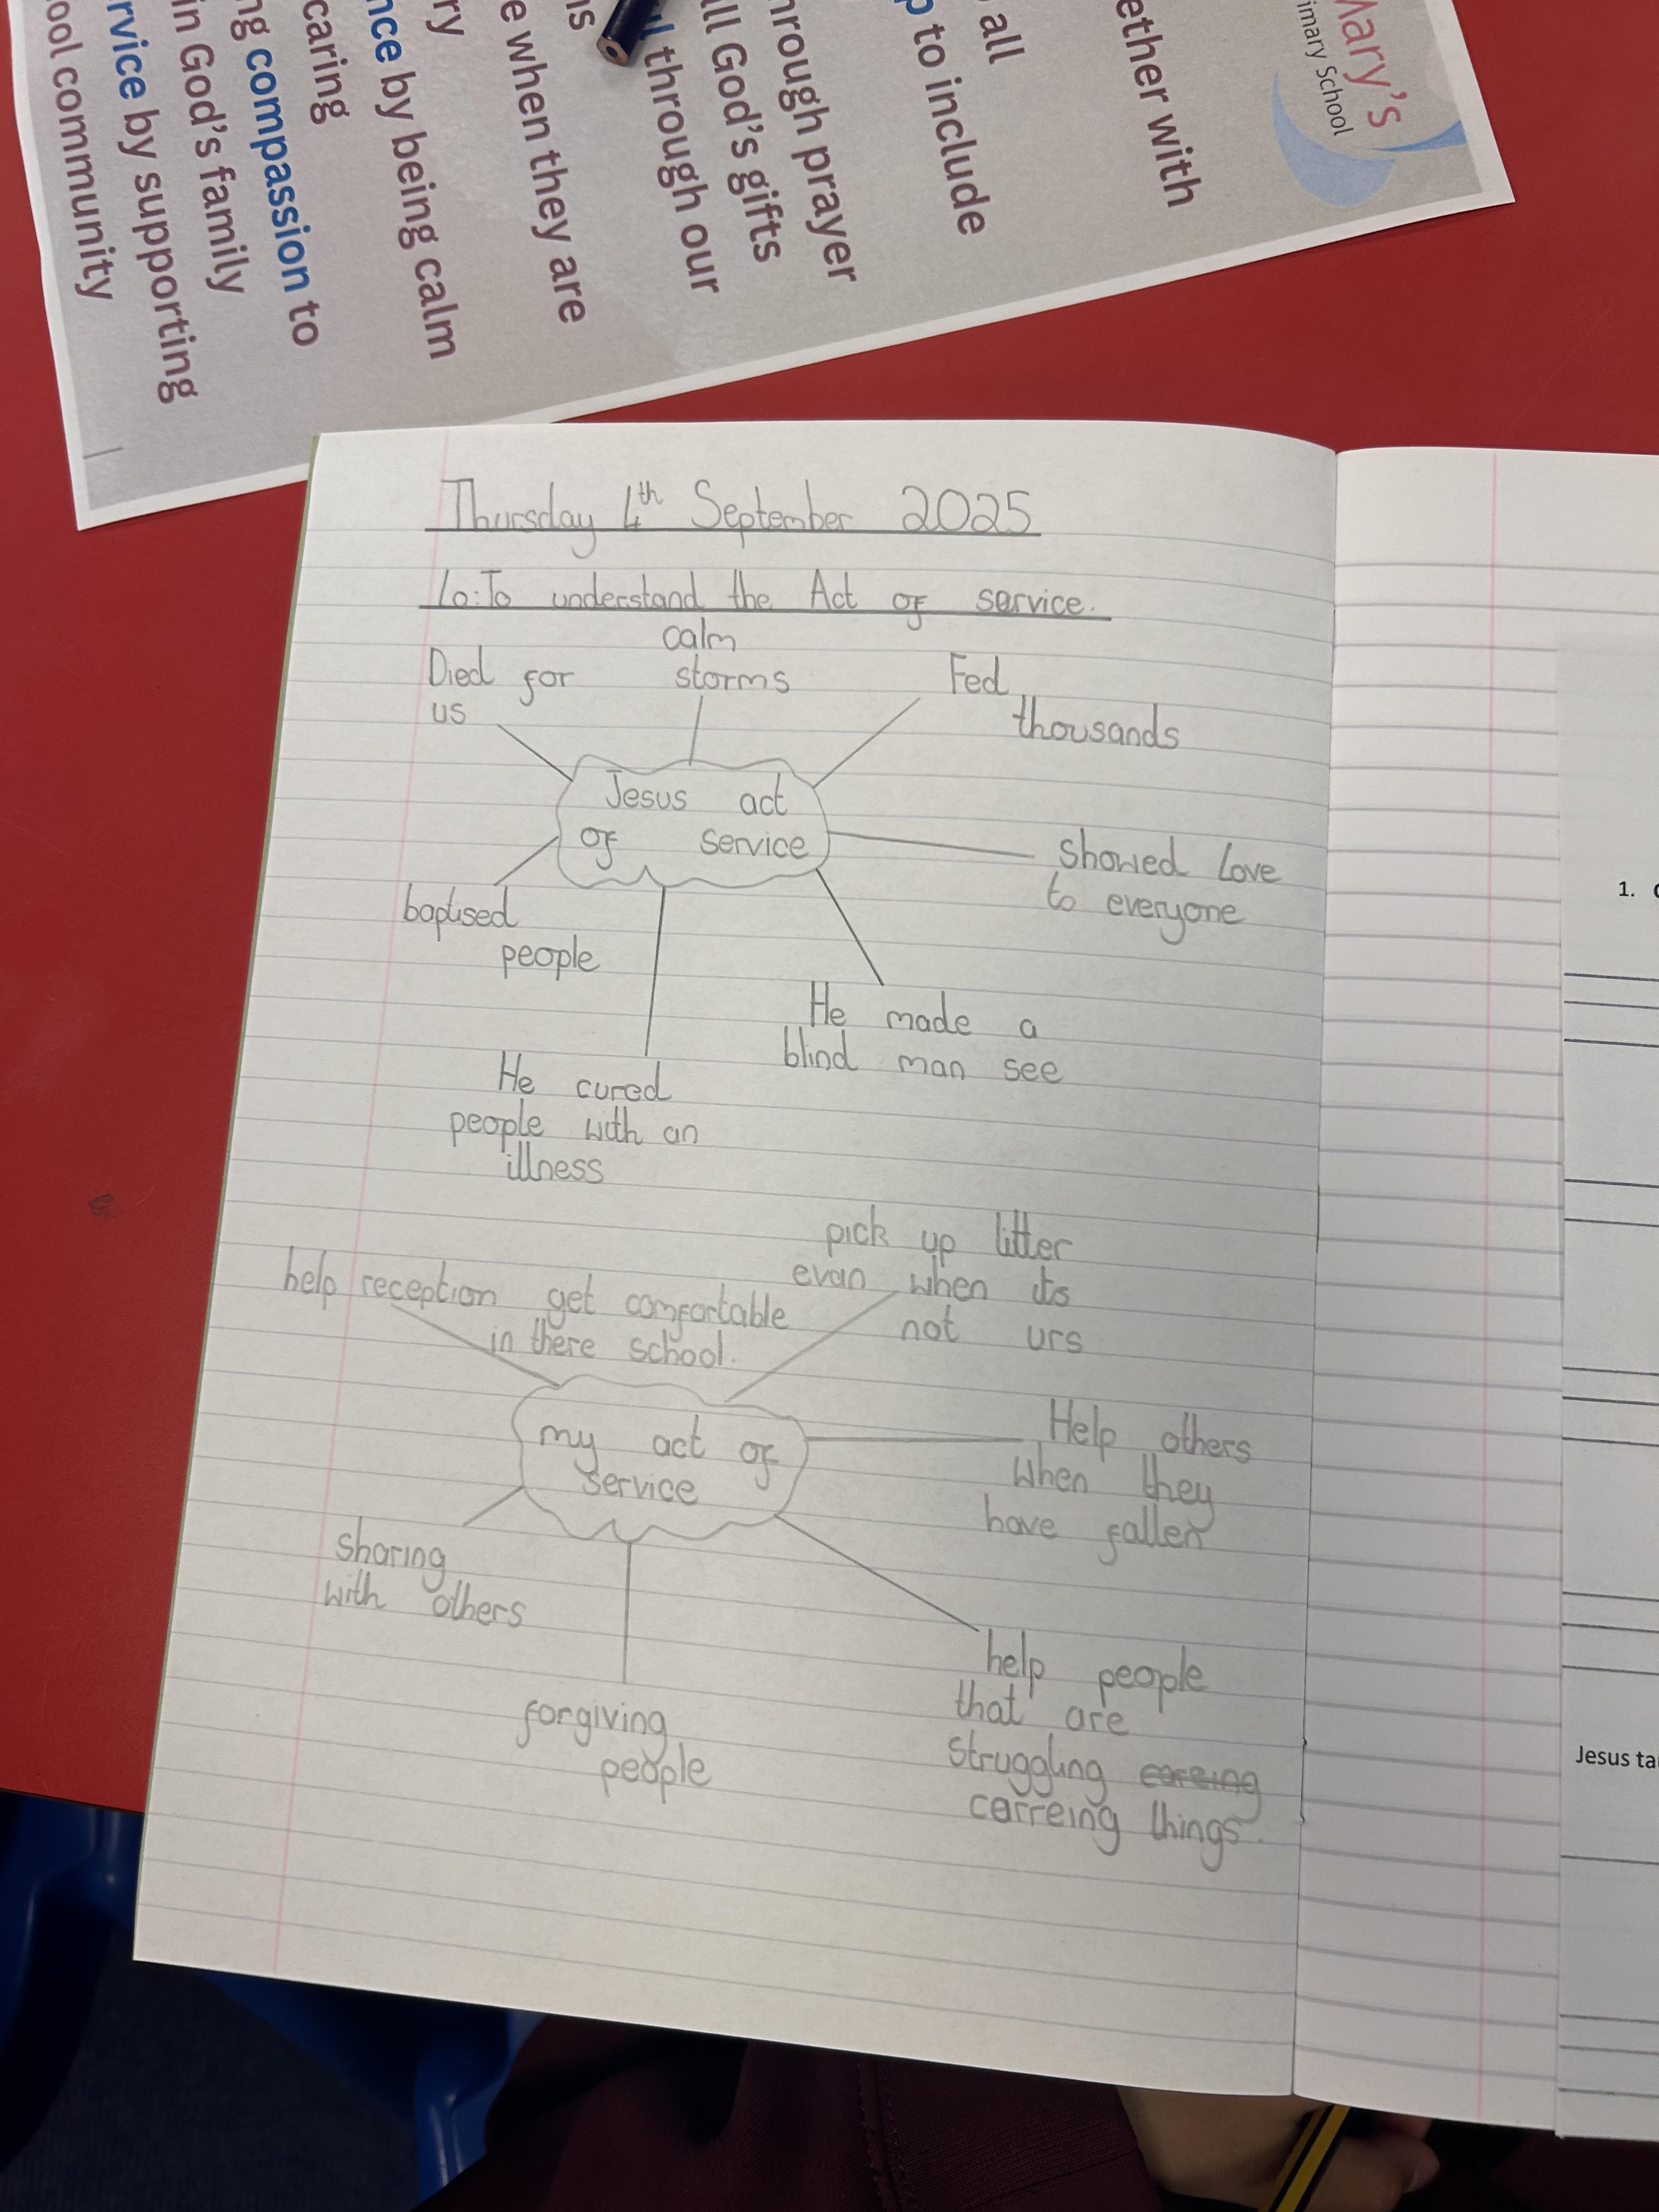 Mary's
imary School
ether with
all
p to include
hrough prayer
ll God's gifts
through our
ns
e when they are
ry
nce by being calm
caring
ng compassion to
in God's family
rvice by supporting
ool community
Thursday 4th September 2025
Lo: To understand the Act of service.
Died for
us
calm
storms
Fed
thousands
Jesus act
of service
showed love
to everyone
baptised
people
He made a
blind man see
He cured
people with an
illness
help reception get comfortable
in there school.
pick up litter
evan when its
not urs
my act of
service
Help others
when they
have fallen
sharing
with others
forgiving
people
help people
that are
struggling
carreing things.
1.
Jesus ta